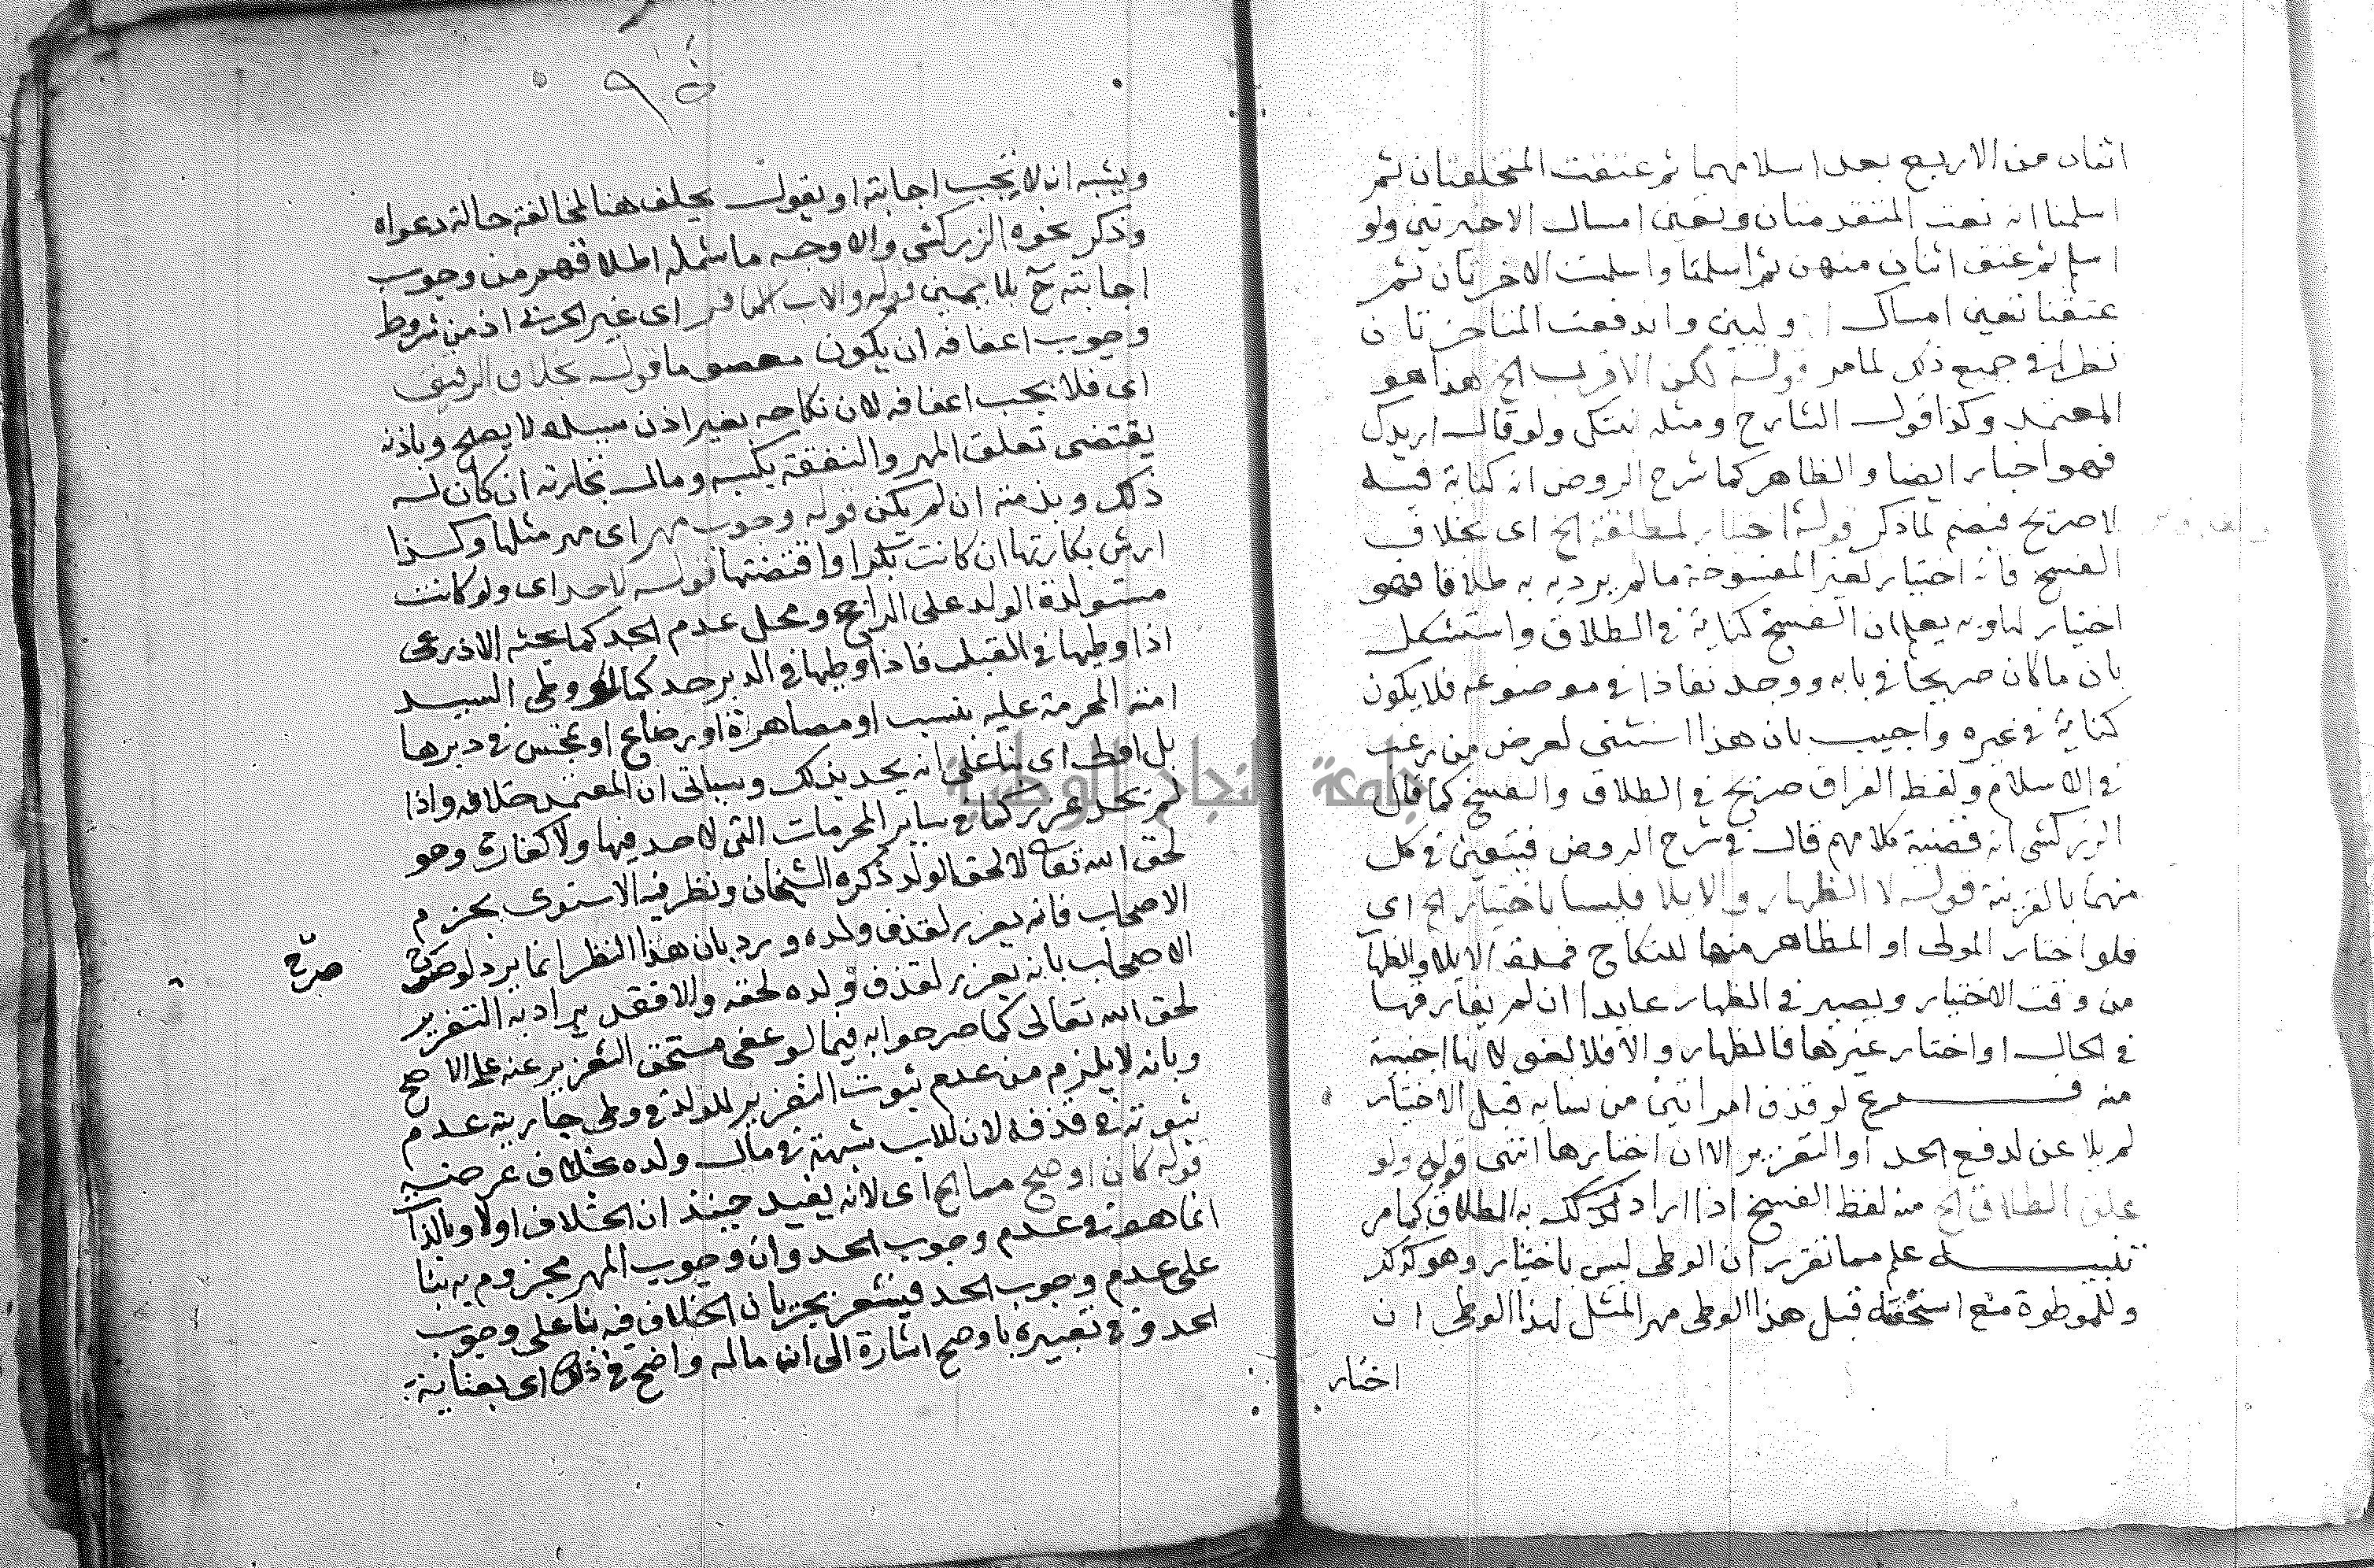 اثنان من الاربع بعد اسلامهما ثم عتقت المتخلفتان ثم
اسلمتا اندفعت المتقدمتان وتعين امساك الاخيرتين ولو
اسلم ثم عتق اثنان منهن ثم اسلمتا واسلمت الاخرتان ثم
عتقتا تعين امساك وليين واندفعت المتاخرتان
نظرا في جميع ذلك لما مر قوله لكن الاقرب الخ هذا هو
المعتمد وكذا قول الشارح ومثله ولو قال اريدك
فهو اختيار ايضا والظاهر كما شرح الروض انه كناية فيه
لا صريح فيضم لما ذكر قوله اختيار لمطلقة الخ اى بخلاف
الفسخ فانه اختيار لغير المفسوخة ما لم يرد به به طلاقا فهو
اختيار لها وبه يعلم ان الفسخ كناية في الطلاق واستشكل
بان ما كان صريحا في بابه ووجد نفاذا في موضوعه فلا يكون
كناية في غيره واجيب بان هذا استثنى لعرض من رغب
في الاسلام ولفظ الفراق صريح في الطلاق والفسخ كما قال
الزركشى انه قضية كلامهم قال في شرح الروض فيتعين في كل
منهما بالقرينة قوله لا الظهار والايلا فليسا باختيار الخ اى
فلو اختار المولى او المظاهر منها للنكاح فمدة الايلا والظها
من وقت الاختيار ويصير في الظهار عايدا ان لم يفارقها
في الحال او اختار غيرها فالظهار والافلا لغى لانها اجنبية
منه فرع لو قذف امراتين من نسايه قبل الاختيار
لم يلاعن لدفع الحد او التعزير الا ان اختارها انتهى قوله ولو
علق الطلاق الخ منه لفظ الفسخ اذا اراد كذلك به الطلاق كما مر
تنبيه علم مما تقرر ان الوطى ليس باختيار وهو كذلك
وللموطوة منع استحقه قبل هذا الوطى مهر المثل لهذا الوطى ان
اختار
ويشبه ان لا تجب اجابته او يقول يحلف هنا لمخالفته حالة دعواه
وذكر نحوه الزركشى والاوجه ما شمله اطلاقهم من وجوب
اجابته ح بلا يمين قوله والاب الكافر اى غير الحربى اذ من شروط
وجوب اعفافه ان يكون معصوما قوله بخلاف الرقيق
اى فلا يجب اعفافه لان نكاحه بغير اذن سيده لا يصح وباذنه
يقتضى تعلق المهر والنفقة بكسبه ومال تجارته ان كان له
ذلك وبذمته ان لم يكن قوله وجوب مهر اى مهر مثلها وكذا
ارش بكارتها ان كانت بكرا وافتضتها قوله لا حد اى ولو كانت
مستولدة الولد على الراجح ومحل عدم الحد كما بحثه الاذرعى
اذا وطيها في القبل فاذا وطيها في الدبر حد كما لو وطى السيد
امته المحرمة عليه بنسب او مصاهرة او رضاع او تمجس في دبرها
بل اولى اى بنا على انه يحد بذلك وسياتى ان المعتمد خلافه واذا
لم يحد عزر كما في ساير المحرمات التى لا حد فيها ولا كفارة وهو
لحق الله تعا لا لحق الولد ذكره الشيخان ونظر فيه الاسنوى بجزم
الاصحاب فانه يعزر لقذف ولده ورد بان هذا النظر انما يرد لو صرح
صرح
الاصحاب بانه يعزر لقذف ولده لحقه والا فقد يراد به التعزير
لحق الله تعالى كما صرحوا به فيما لو عفى مستحق التعزير عنه على الاصح
وبانه لا يلزم من عدم ثبوت التعزير للولد في وطى جاريته عدم
ثبوته في قذفه لان للاب شبهة في مال ولده بخلاف عرضه
قوله كان اوضح مما الخ اى لانه يفيد حينئذ ان الخلاف اولا وبالذات
انما هو في عدم وجوب الحد وان وجوب المهر مجزوم به بنا
على عدم وجوب الحد فيشعر بجزيان الخلاف فيه بنا على وجوب
الحد وفي تعبيره باوضح اشارة الى ان ماله واضح في ذلك اى بعناية